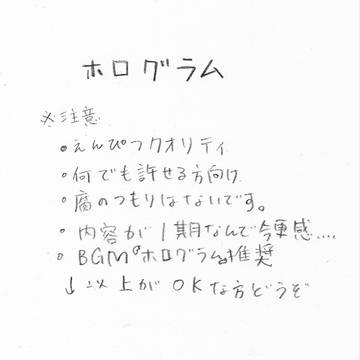 ホログラム
※注意
•えんぴつクオリティ
•何でも許せる方向け
•腐のつもりはないです。
•内容が1期なんで今更感....
•BGM『ホログラム』推奨
↓以上がOKな方どうぞ